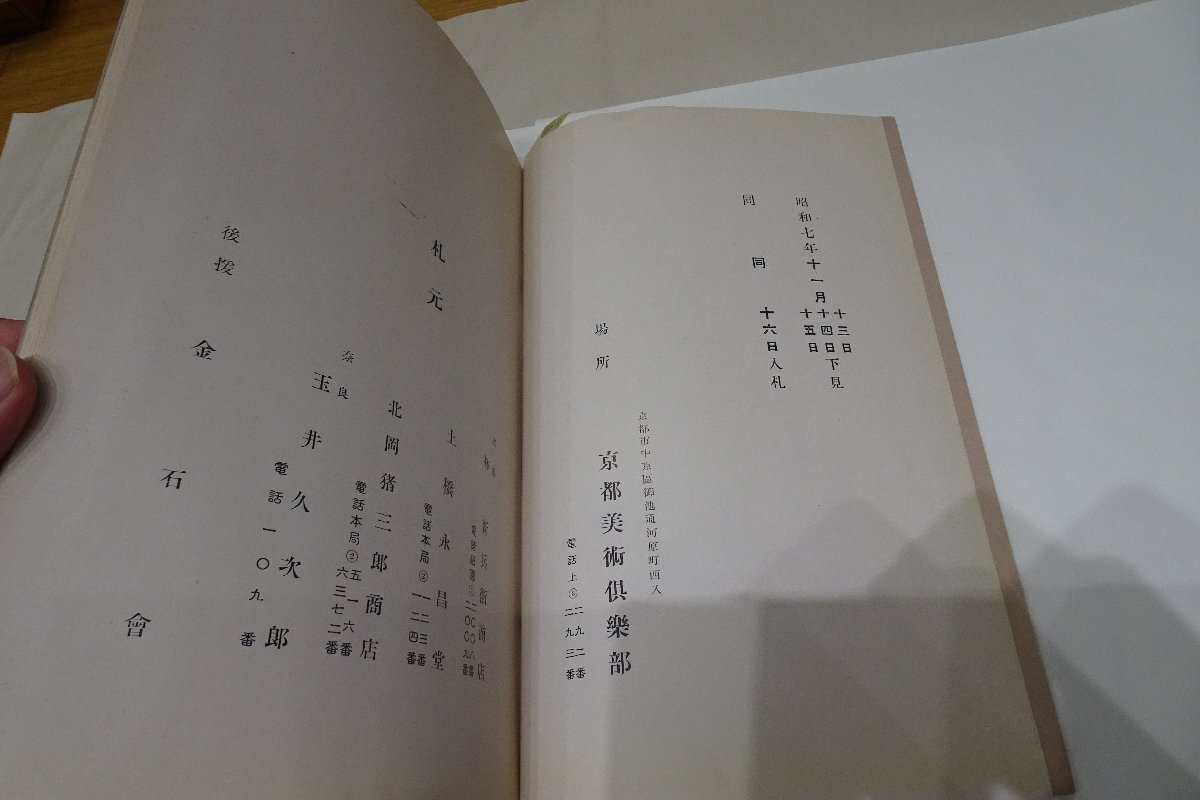 昭和七年十一月
十三日
十四日下見
十五日
同 同 十六日入札
場所
京都市中京區御池通河原町西入
京都美術俱樂部
電話上
二九二番
二九三番
札元
商店
土橋永昌堂
電話本局②
一一二三番
二四番
北岡猪三郎商店
電話本局②
五一六番
六三七二番
奈良
玉井久次郎
電話一〇九番
後援 金石會